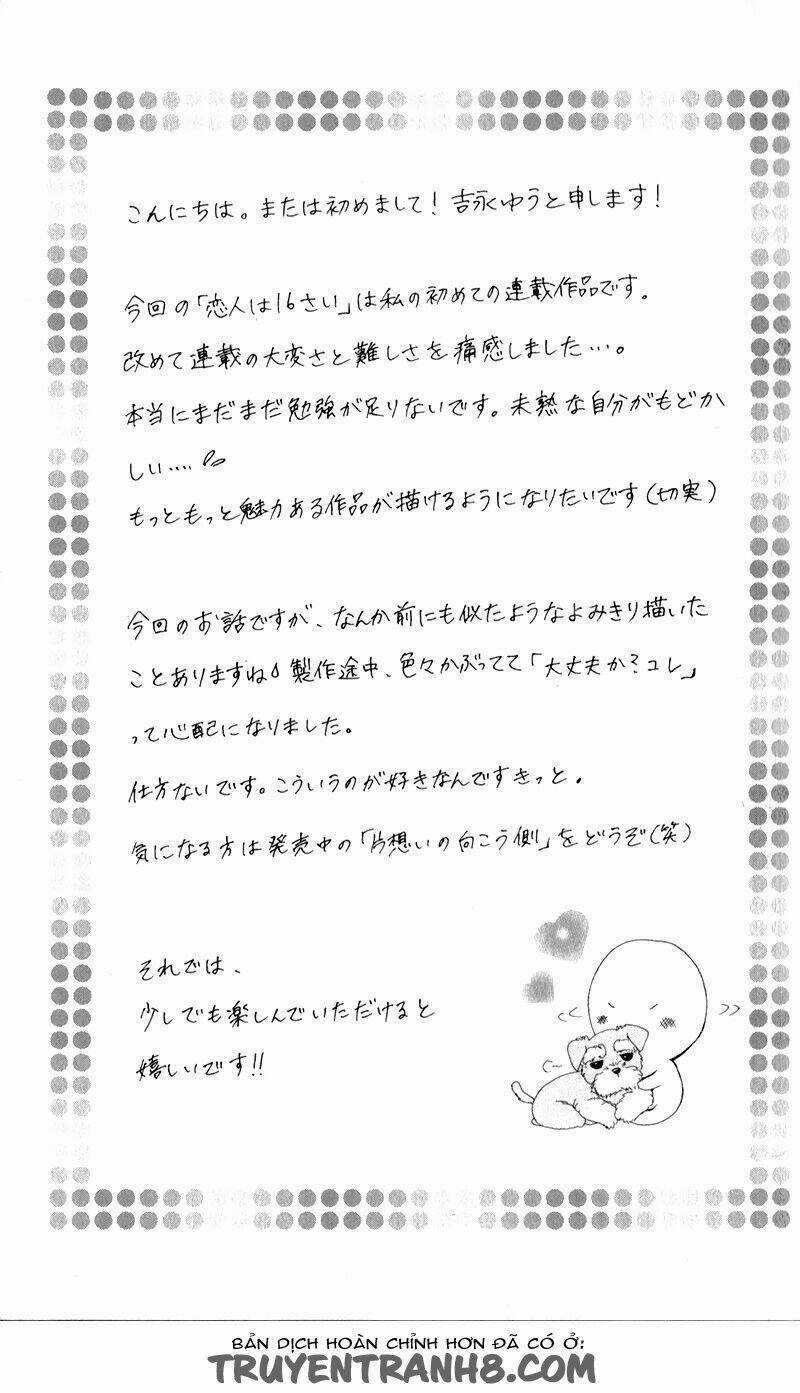 こんにちは。または初めまして!吉永ゆうと申します!
今回の「恋人は16さい」は私の初めての連載作品です。
改めて連載の大変さと難しさを痛感しました…。
本当にまだまだ勉強が足りないです。未熟な自分がもどか
しい....
もっともっと魅力ある作品が描けるようになりたいです(切実)
今回のお話ですが、なんか前にも似たようなよみきり描いた
ことありますね 製作途中、色々かぶってて「大丈夫か?コレ」
って心配になりました。
仕方ないです。こういうのが好きなんですきっと。
気になる方は発売中の「片想いの向こう側」をどうぞ(笑)
それでは、
少しでも楽しんでいただけると
嬉しいです!!
BẢN DỊCH HOÀN CHỈNH HƠN ĐÃ CÓ Ở:
TRUYENTRANH8.COM